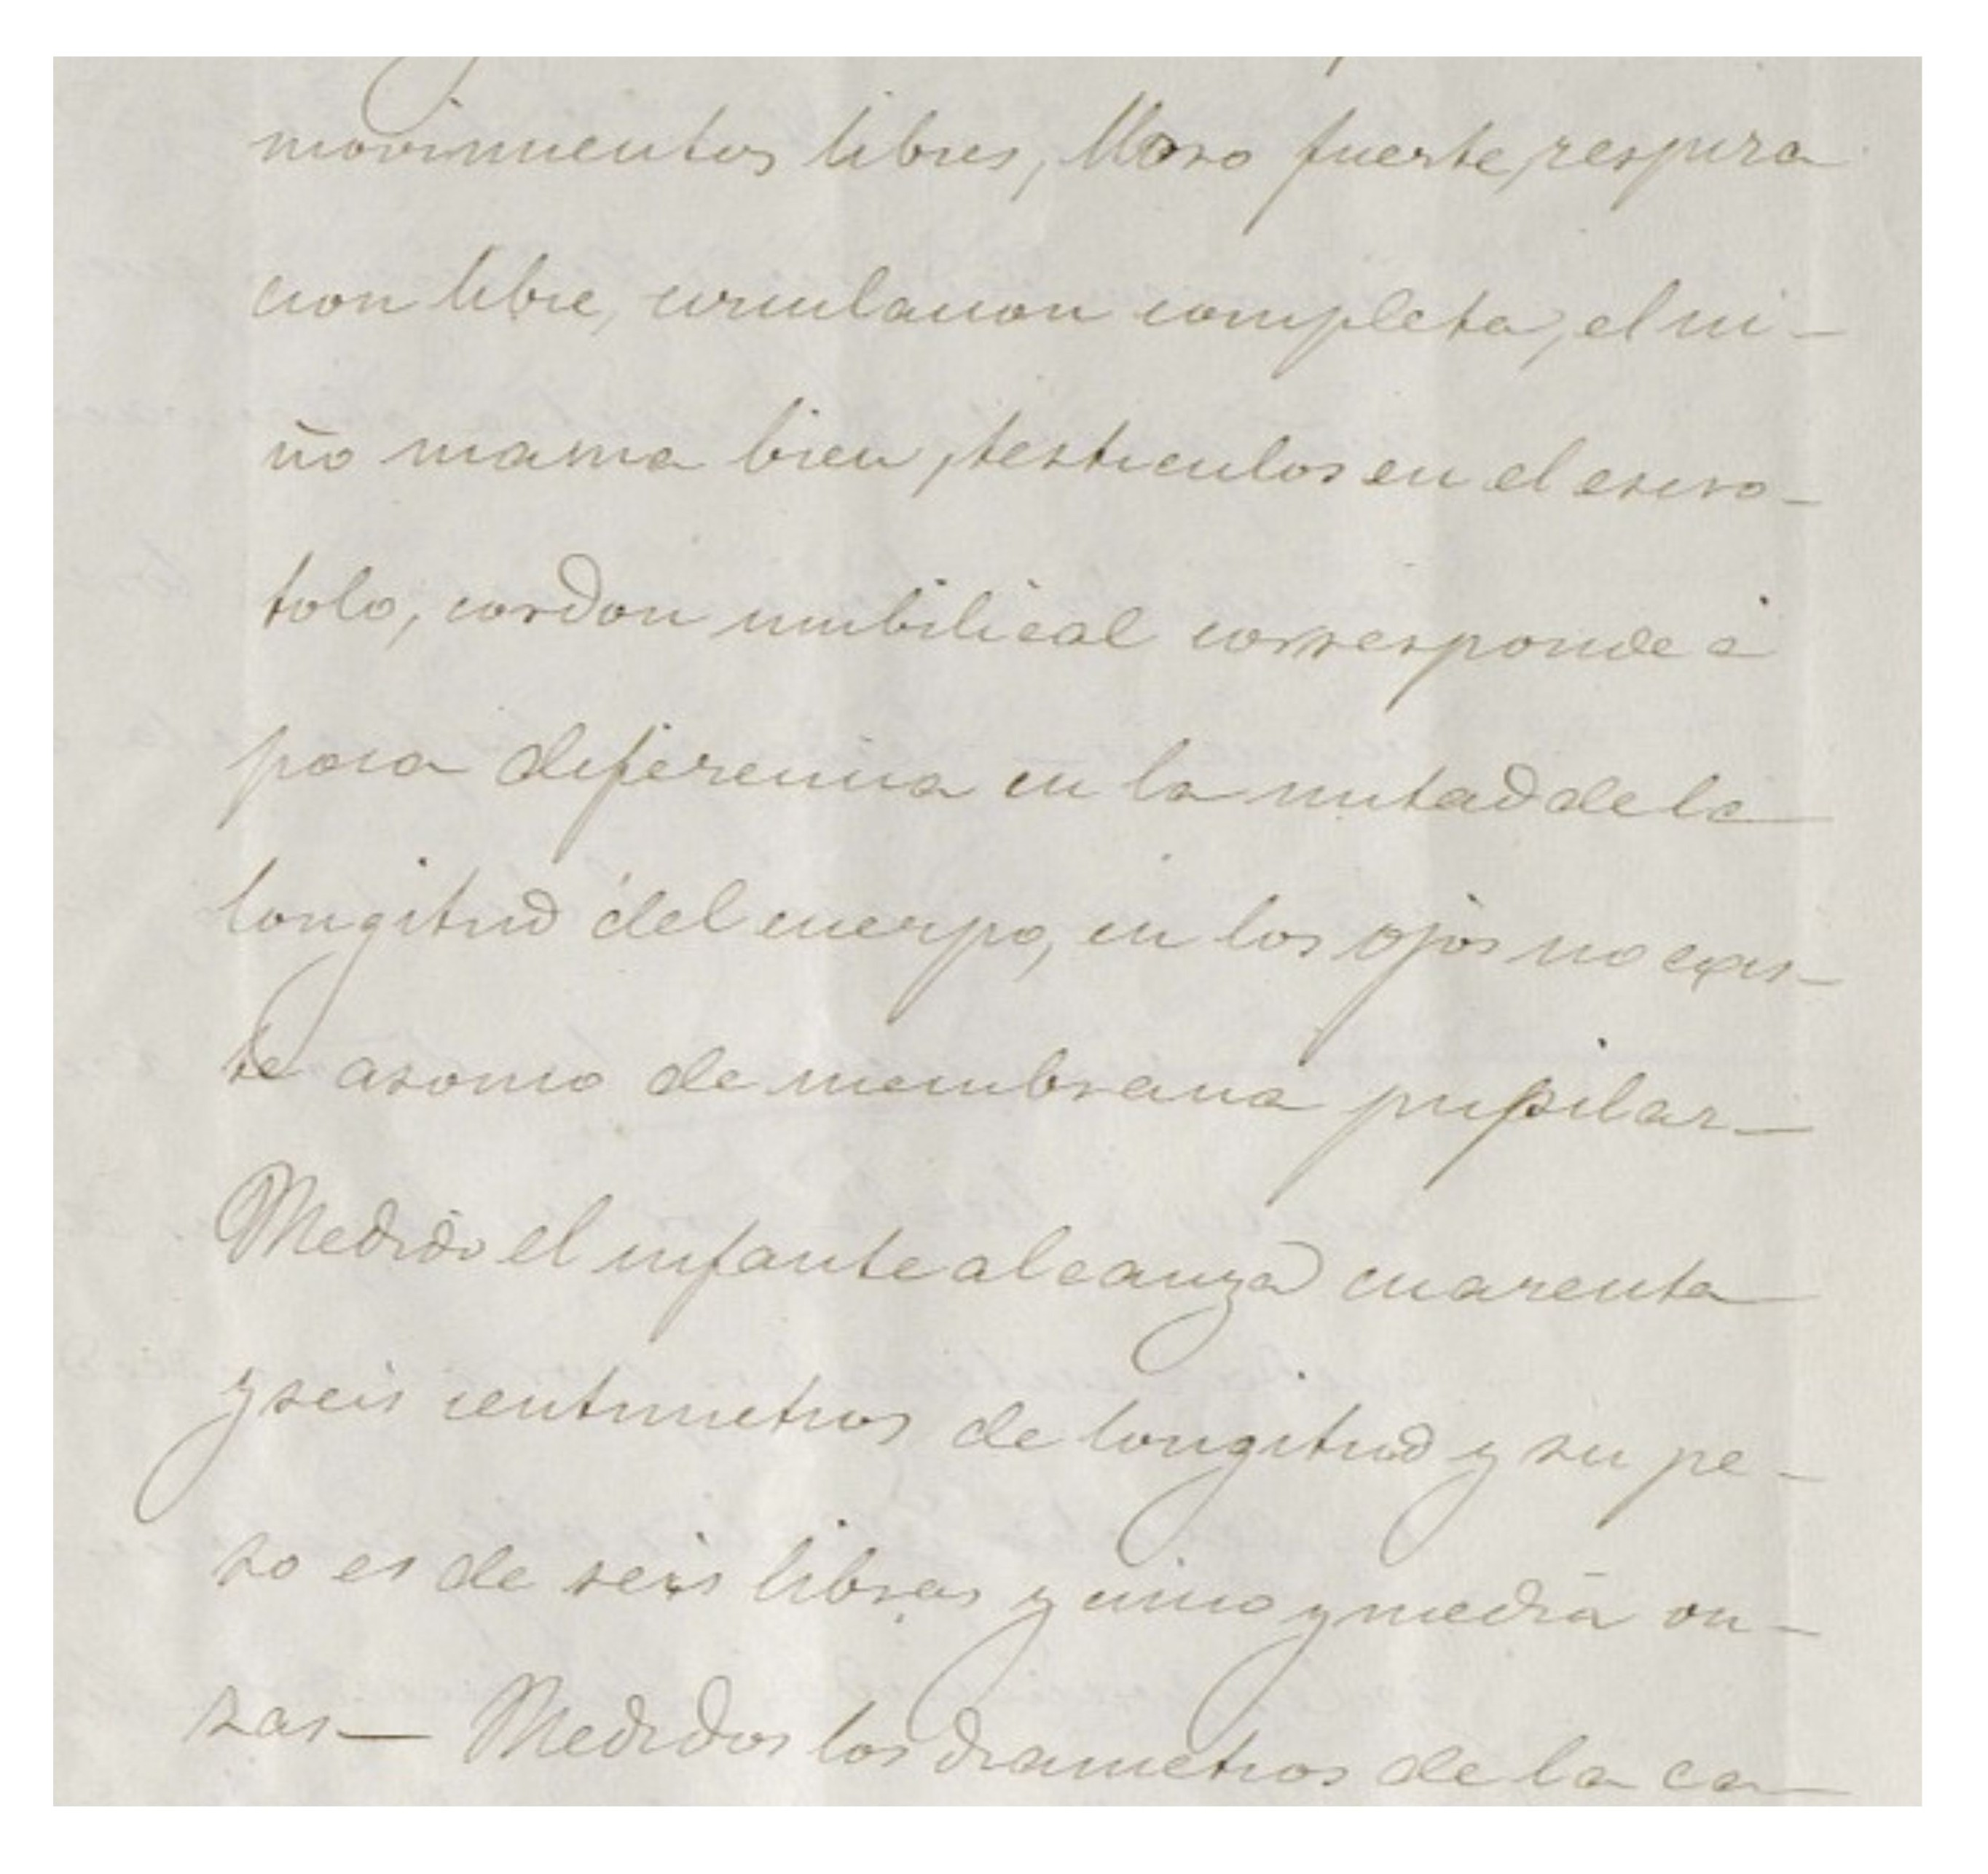 movimientos libres, lloro fuerte, respira
cion libre, circulacion completa, el ni-
ño mama bien, testiculos en el escro-
tolo, cordon umbilical corresponde á
poca diferencia en la mitad de la
longitud del cuerpo, en los ojos no exis-
te asomo de membrana pupilar—
Medido el infante alcanza cuarenta
y seis centimetros de longitud y su pe-
so es de seis libras y cinco y media on-
zas— Medidos los diametros de la ca—